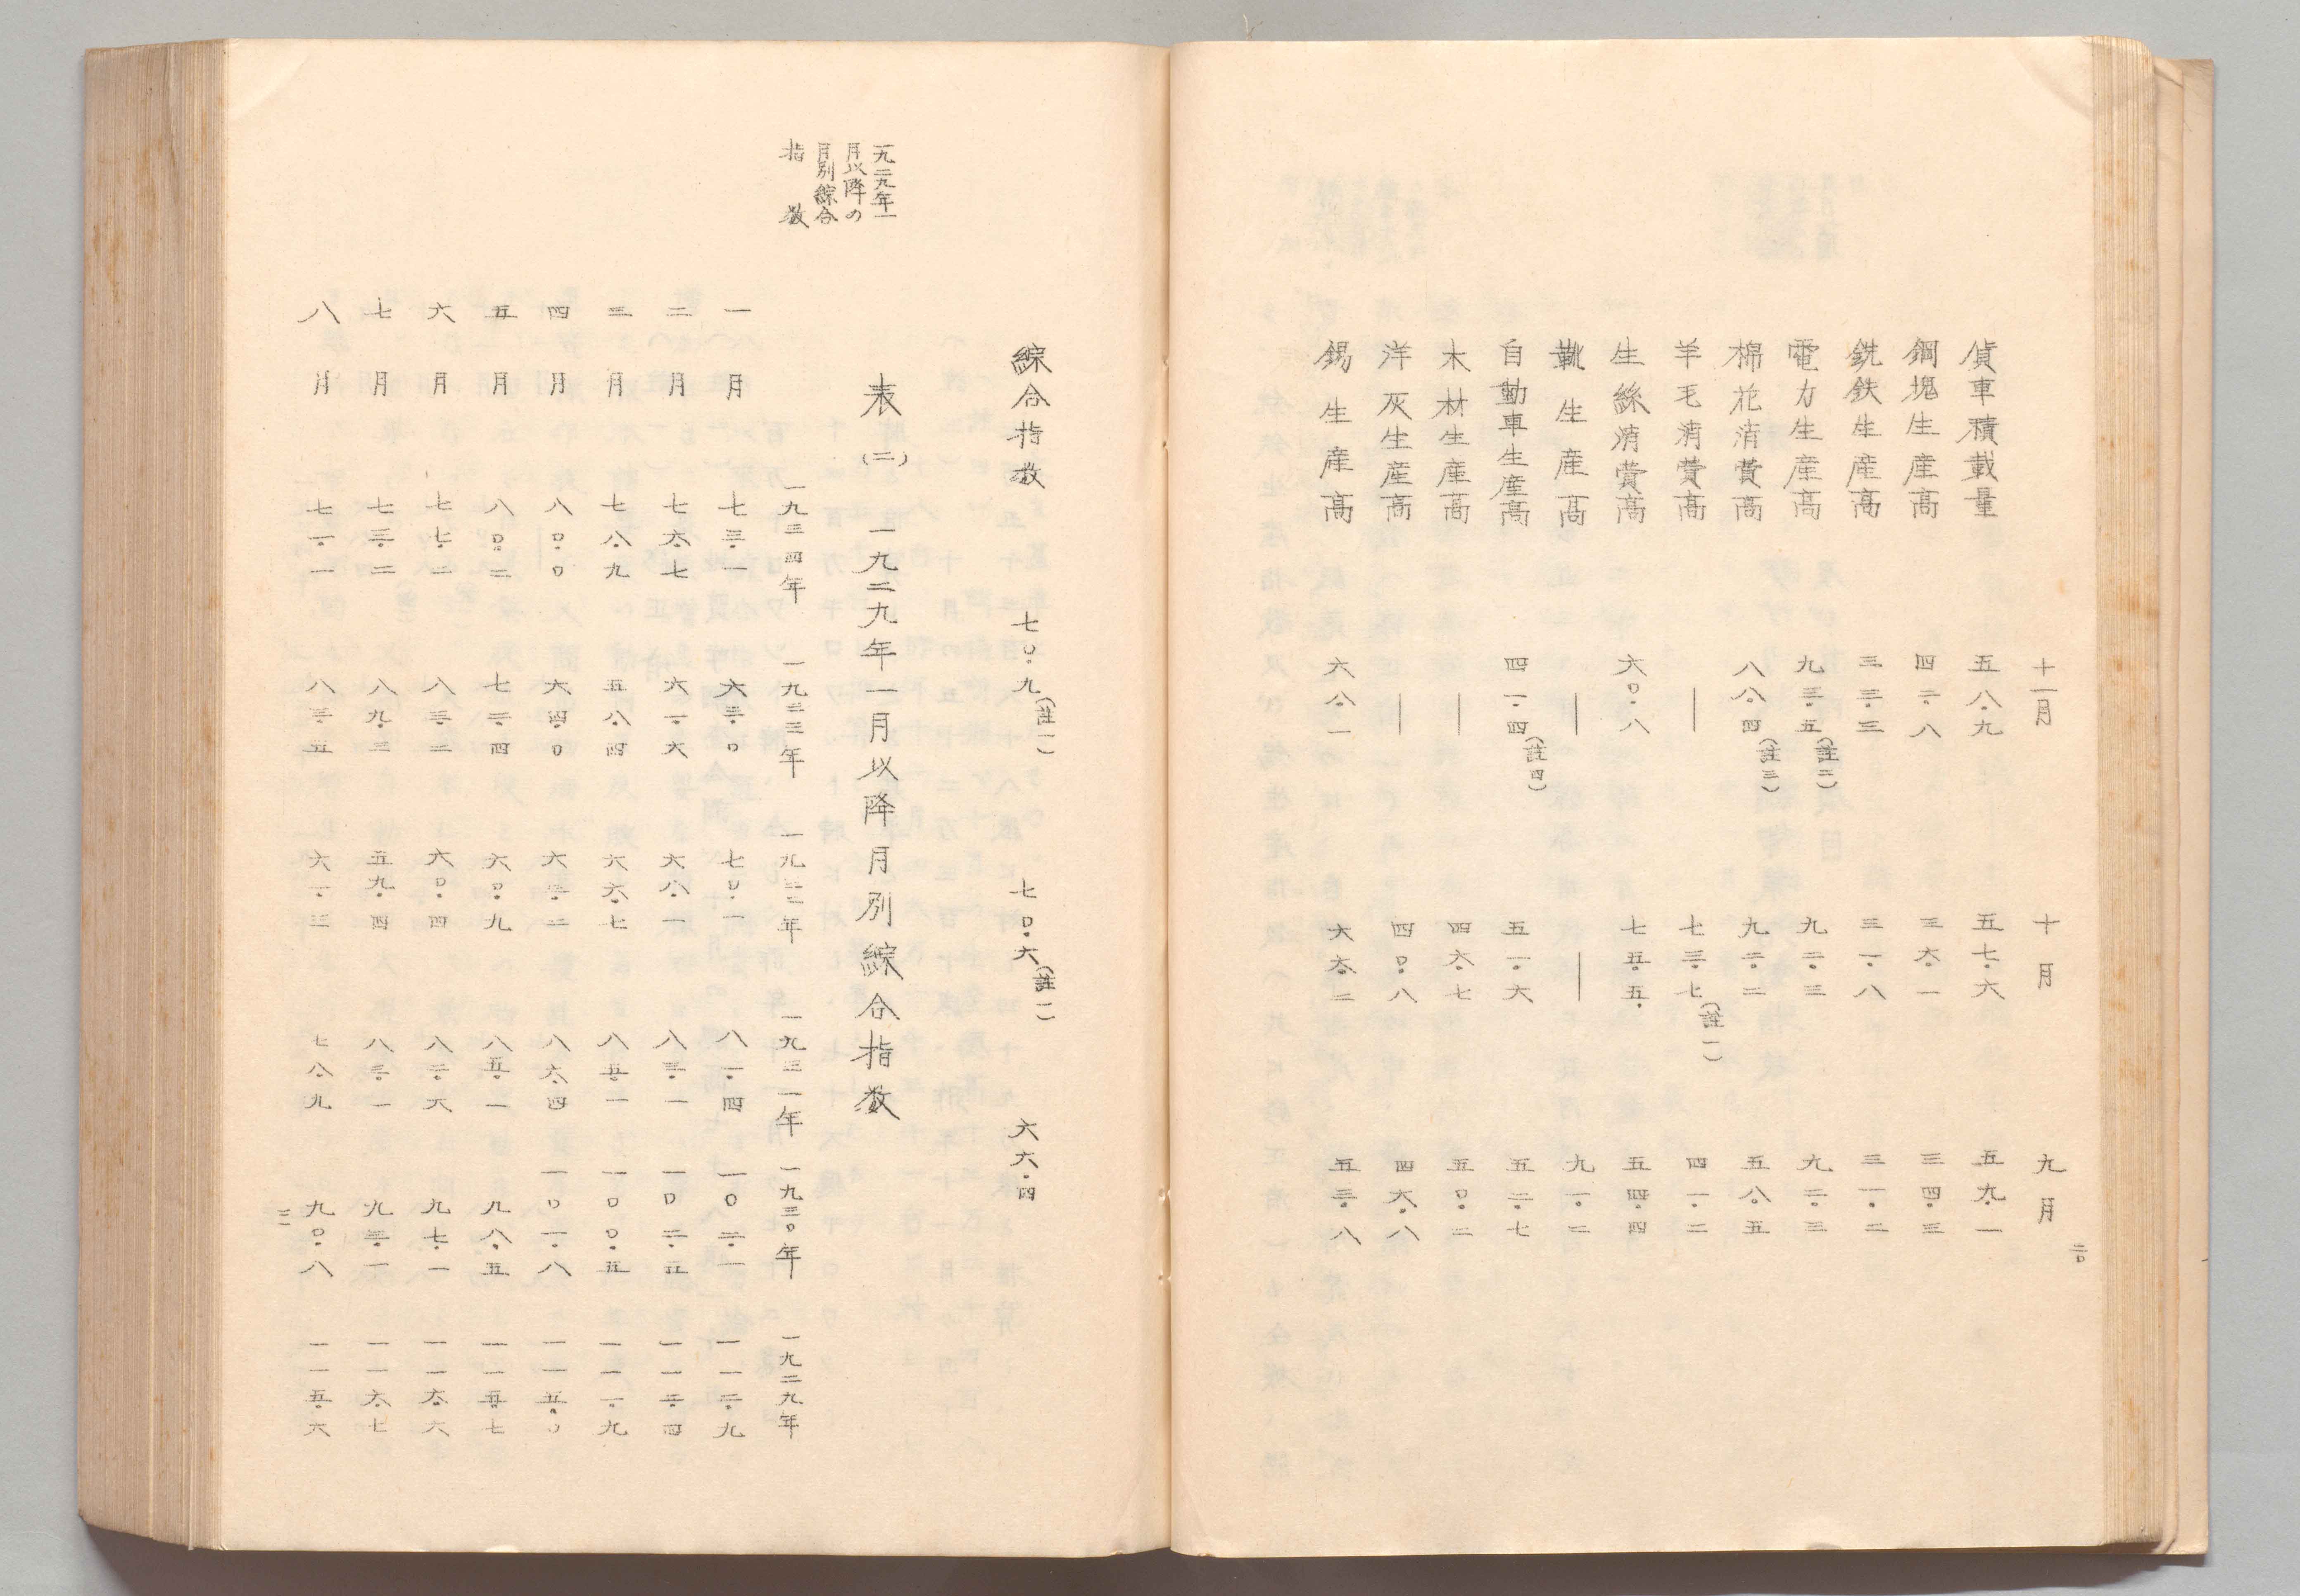 二〇
十一月 十月 九月
貨車積載量 五八・九 五七・六 五九・一
鋼塊生産高 四二・八 三六・一 三四・三
銑鉄生産高 三三・三 三一・八 三一・二
電力生産高 九三・五(註二) 九二・三 九二・三
棉花消費高 八八・四(註三) 九二・二 五八・五
羊毛消費高 ― 七三・七(註一) 四一・二
生絲消費高 六〇・八 七五・五 五四・四
靴生産高 ― ― 九一・二
自動車生産高 四一・四(註四) 五一・六 五二・七
木材生産高 ― 四六・七 五〇・二
洋灰生産高 ― 四〇・八 四六・八
錫生産高 六八・一 六六・二 五三・八
綜合指数 七〇・九(註一) 七〇・六(註一) 六六・四
一九二九年一
月以降の
月別綜合
指数
表(二) 一九二九年一月以降月別綜合指数
一九三四年 一九三三年 一九三二年 一九三一年 一九三〇年 一九二九年
一月 七三・一 六三・〇 七〇・一 八一・四 一〇二・一 一一二・九
二月 七六・七 六一・六 六八・一 八三・一 一〇二・五 一一二・四
三月 七八・九 五八・四 六六・七 八五・一 一〇〇・五 一一一・九
四月 八〇・〇 六四・〇 六三・二 八六・四 一〇一・八 一一五・〇
五月 八〇・二 七二・四 六〇・九 八五・一 九八・五 一一五・七
六月 七七・二 八三・二 六〇・四 八二・六 九七・一 一一六・六
七月 七三・二 八九・三 五九・四 八三・一 九三・一 一一六・七
八月 七一・一 八三・五 六一・三 七八・九 九〇・八 一一五・六
二一